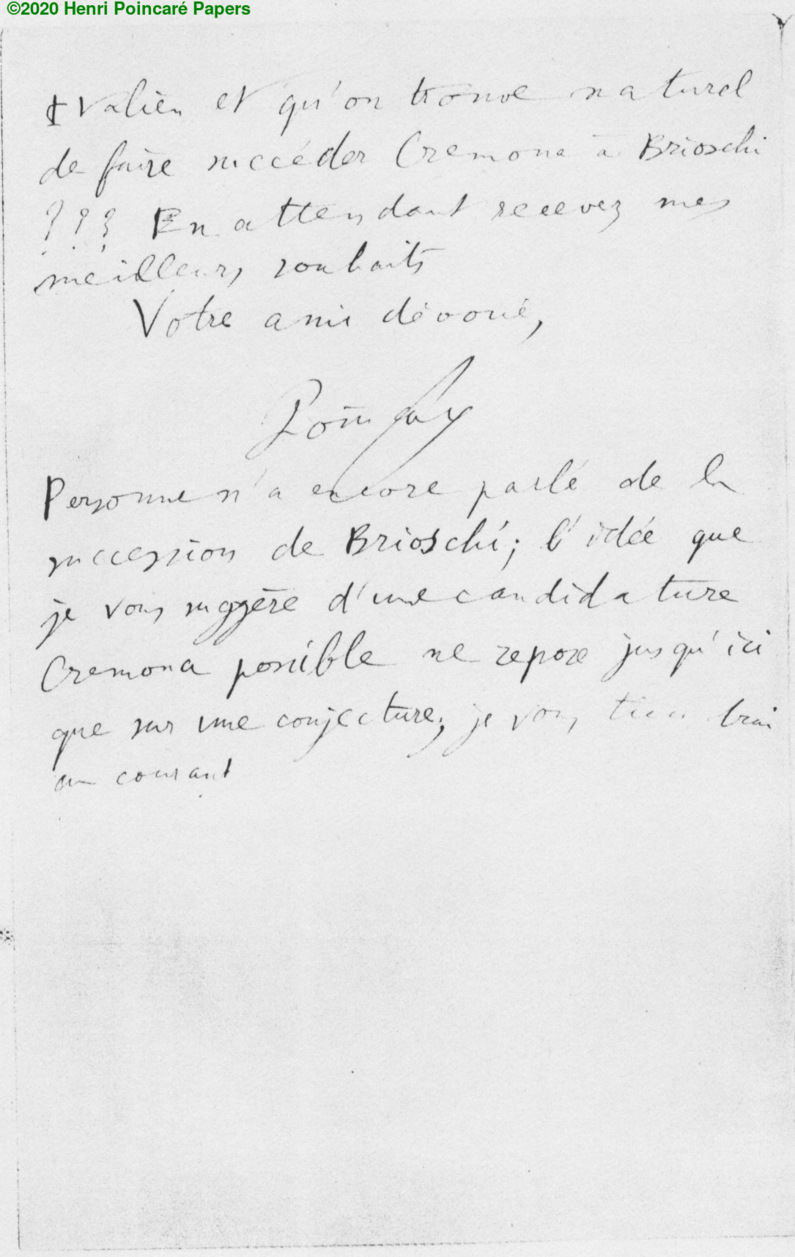 ©2020 Henri Poincaré Papers
Italien et qu'on trouve naturel
de faire succéder Cremona à Brioschi
??? En attendant recevez mes
meilleurs souhaits
Votre ami dévoué,
Poincaré
Personne n'a encore parlé de la
succession de Brioschi; l'idée que
je vous suggère d'une candidature
Cremona possible ne repose jusqu'ici
que sur une conjecture; je vous tiendrai
au courant